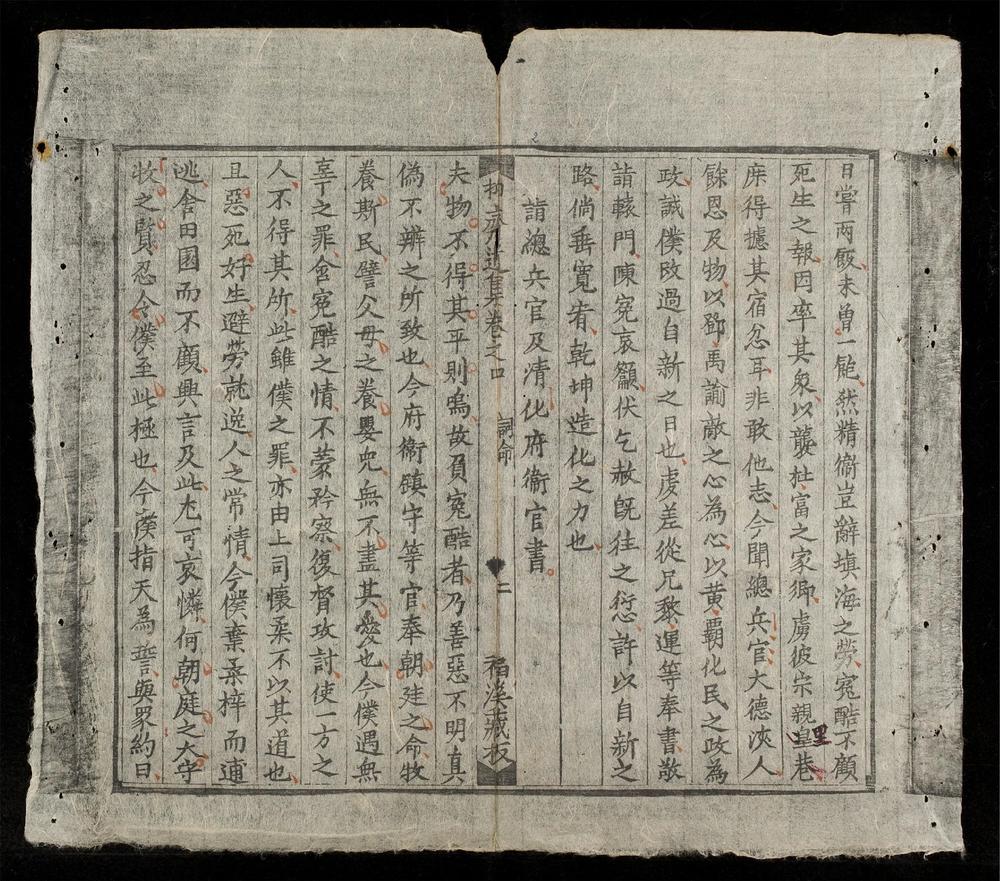 日嘗両飯未曾一飽然精衛豈辭填海之勞寃酷不顧
死生之報因率其衆以襲杜富之家鄉虜彼宗親里巷
庶得攄其宿忿耳非敢他志今聞總兵官大德浹人
餘恩及物以鄧禹諭敵之心為心以黄覇化民之政為
政誠僕改過自新之日也虔差從兄黎運等奉書敬
詣轅門陳寃哀籲伏乞赦既往之愆許以自新之
路倘垂寛宥乾坤造化之力也
詣總兵官及清化府衞官書
抑齋遺集卷之口 詞命 二 福溪藏板
夫物不得其平則鳴故負寃酷者乃善惡不明真
偽不辨之所致也今府衞鎮守等官奉朝廷之命牧
養斯民譬父母之養嬰兒無不盡其愛也今僕遇無
辜之罪含寃酷之情不蒙矜察復督攻討使一方之
人不得其所此雖僕之罪亦由上司懷柔不以其道也
且惡死好生避勞就逸人之常情今僕棄桑梓而逋
逃舍田園而不顧興言及此尤可哀憐何朝庭之大守
牧之賢忍令僕至此極也今僕指天為誓與衆約曰
2